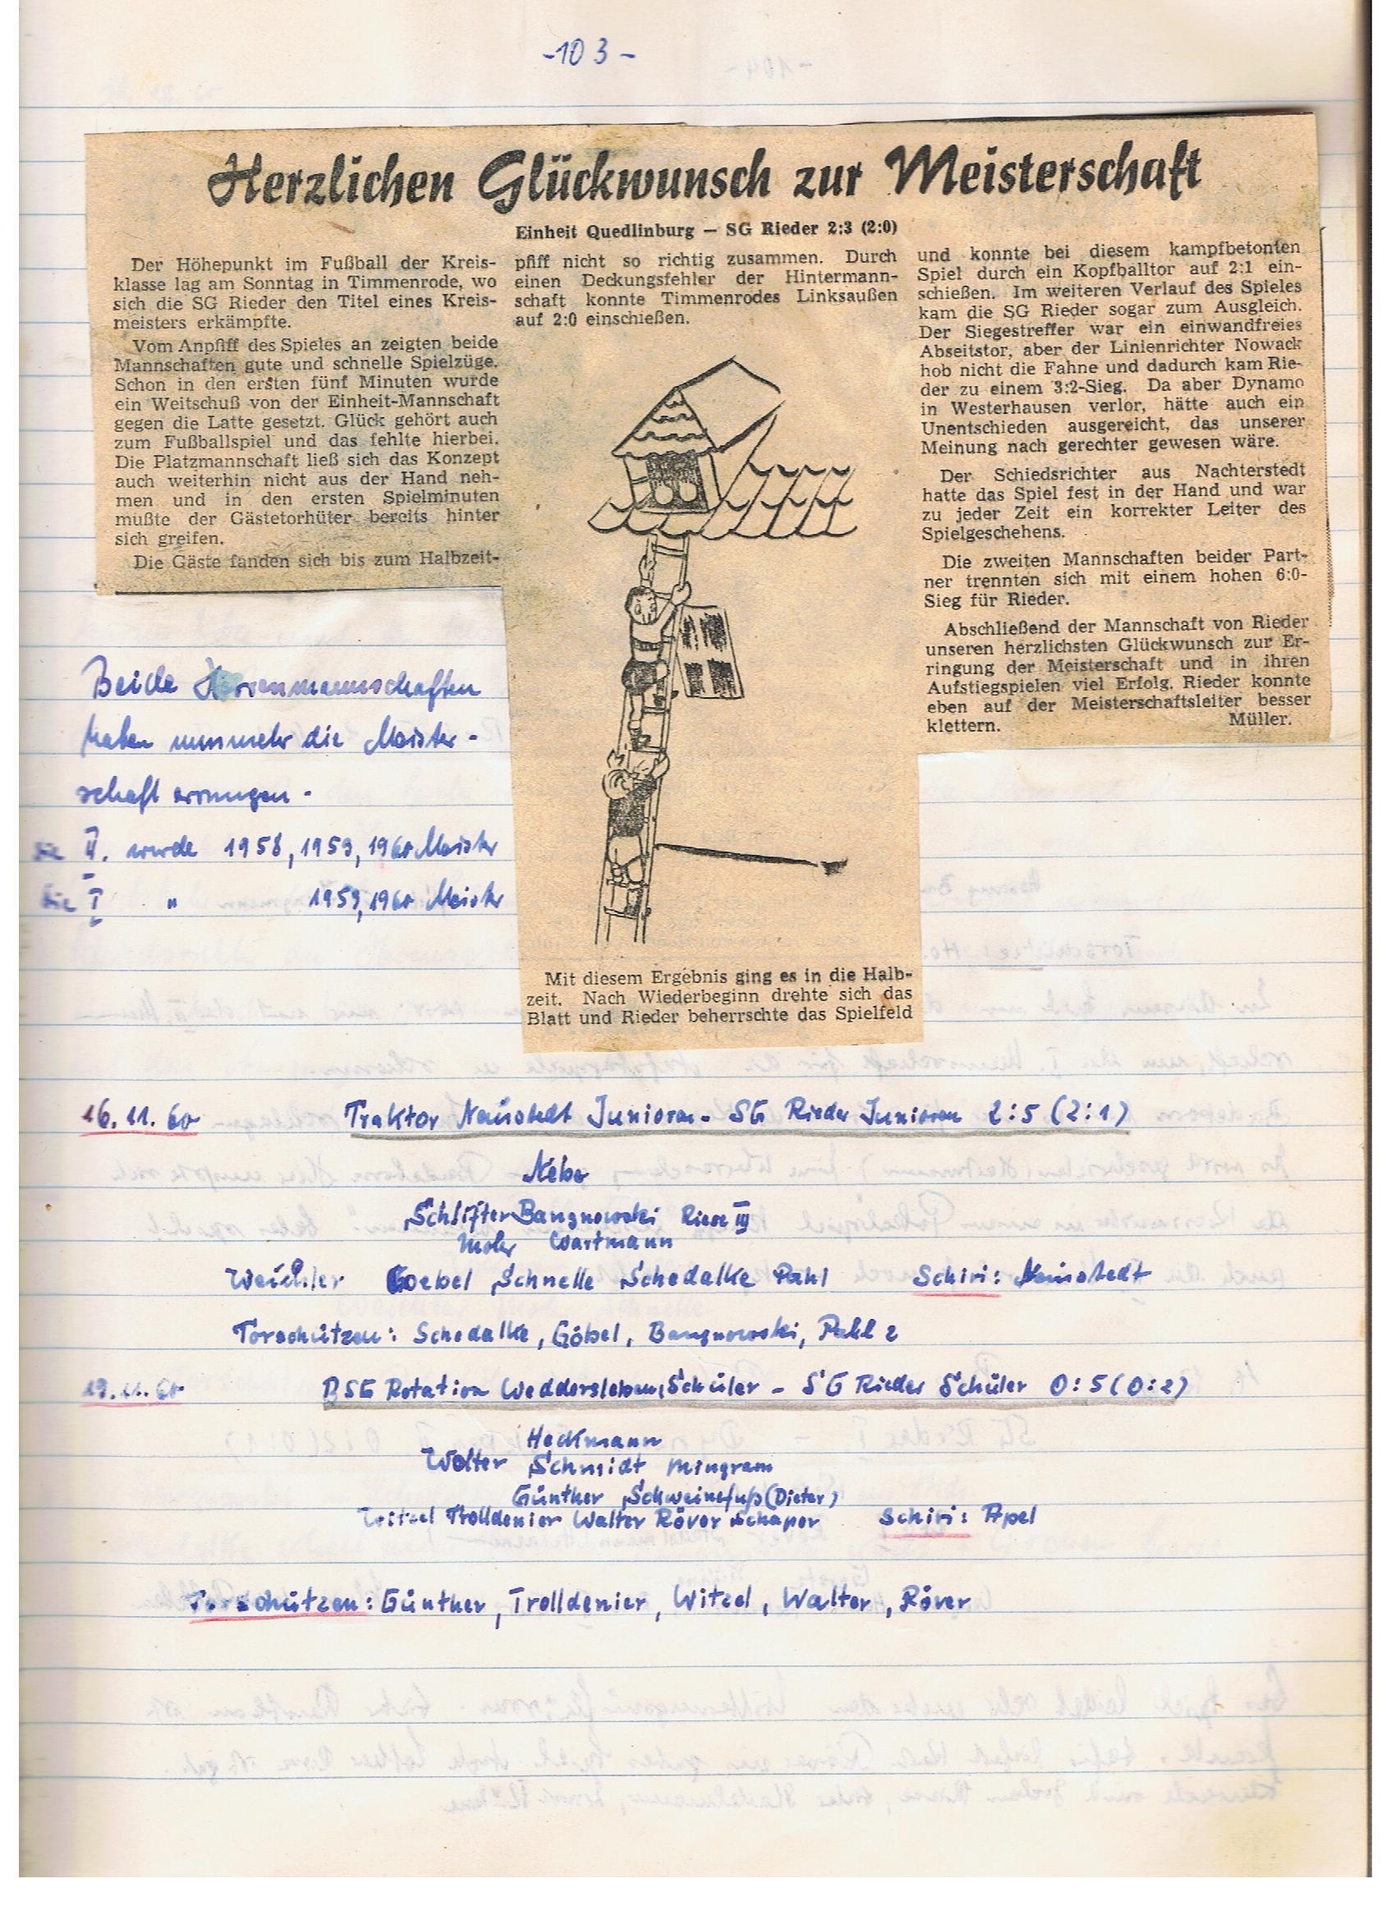 -103-
Herzlichen Glückwunsch zur Meisterschaft
Einheit Quedlinburg — SG Rieder 2:3 (2:0)
Der Höhepunkt im Fußball der Kreis-
klasse lag am Sonntag in Timmenrode, wo
sich die SG Rieder den Titel eines Kreis-
meisters erkämpfte.
Vom Anpfiff des Spieles an zeigten beide
Mannschaften gute und schnelle Spielzüge.
Schon in den ersten fünf Minuten wurde
ein Weitschuß von der Einheit-Mannschaft
gegen die Latte gesetzt. Glück gehört auch
zum Fußballspiel und das fehlte hierbei.
Die Platzmannschaft ließ sich das Konzept
auch weiterhin nicht aus der Hand neh-
men und in den ersten Spielminuten
mußte der Gästetorhüter bereits hinter
sich greifen.
Die Gäste fanden sich bis zum Halbzeit-
pfiff nicht so richtig zusammen. Durch
einen Deckungsfehler der Hintermann-
schaft konnte Timmenrodes Linksaußen
auf 2:0 einschießen.
Mit diesem Ergebnis ging es in die Halb-
zeit. Nach Wiederbeginn drehte sich das
Blatt und Rieder beherrschte das Spielfeld
und konnte bei diesem kampfbetonten
Spiel durch ein Kopfballtor auf 2:1 ein-
schießen. Im weiteren Verlauf des Spieles
kam die SG Rieder sogar zum Ausgleich.
Der Siegestreffer war ein einwandfreies
Abseitstor, aber der Linienrichter Nowack
hob nicht die Fahne und dadurch kam Rie-
der zu einem 3:2-Sieg. Da aber Dynamo
in Westerhausen verlor, hätte auch ein
Unentschieden ausgereicht, das unserer
Meinung nach gerechter gewesen wäre.
Der Schiedsrichter aus Nachterstedt
hatte das Spiel fest in der Hand und war
zu jeder Zeit ein korrekter Leiter des
Spielgeschehens.
Die zweiten Mannschaften beider Part-
ner trennten sich mit einem hohen 6:0-
Sieg für Rieder.
Abschließend der Mannschaft von Rieder
unseren herzlichsten Glückwunsch zur Er-
ringung der Meisterschaft und in ihren
Aufstiegspielen viel Erfolg. Rieder konnte
eben auf der Meisterschaftsleiter besser
klettern. Müller.
Beide Herrenmannschaften
haben nunmehr die Meister-
schaft errungen.
die II. wurde 1958, 1959, 1960 Meister
die I " 1959, 1960 Meister
16.11.60 Traktor Neinstedt Junioren - SG Rieder Junioren 2:5 (2:1)
Nebe
Schlüter Bangnowski Riese III
Moler Wartmann
Weichler Goebel Schnelle Schedalke Pahl Schiri: Neinstedt
Torschützen: Schedalke, Göbel, Bangnowski, Pahl 2
19.11.60 BSG Rotation Weddersleben Schüler - SG Rieder Schüler 0:5 (0:2)
Heckmann
Wolter Schmidt Mingram
Günther Schweinefuß (Dieter)
Witzel Trolldenier Walter Röver Schaper Schiri: Apel
Torschützen: Günther, Trolldenier, Witzel, Walter, Röver